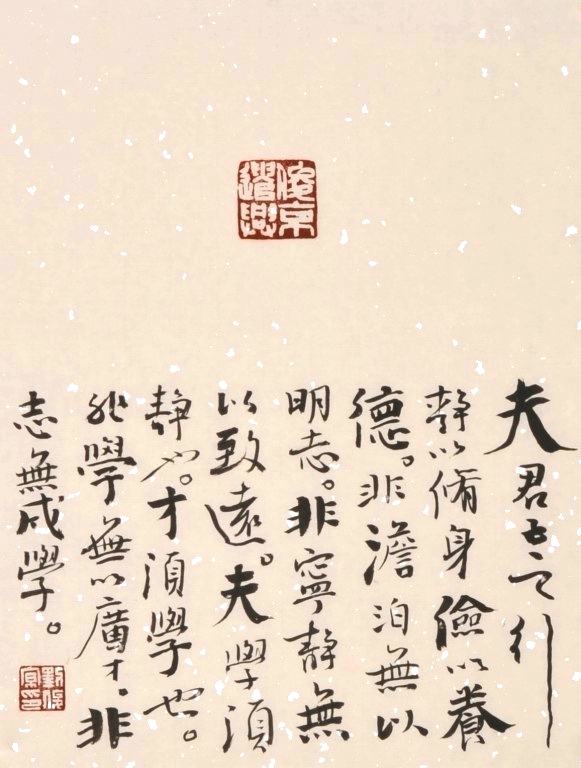 夫君子之行
靜以脩身儉以養
德。非澹泊無以
明志。非寧靜無
以致遠。夫學須
靜也。才須學也。
非學無以廣才、非
志無成學。